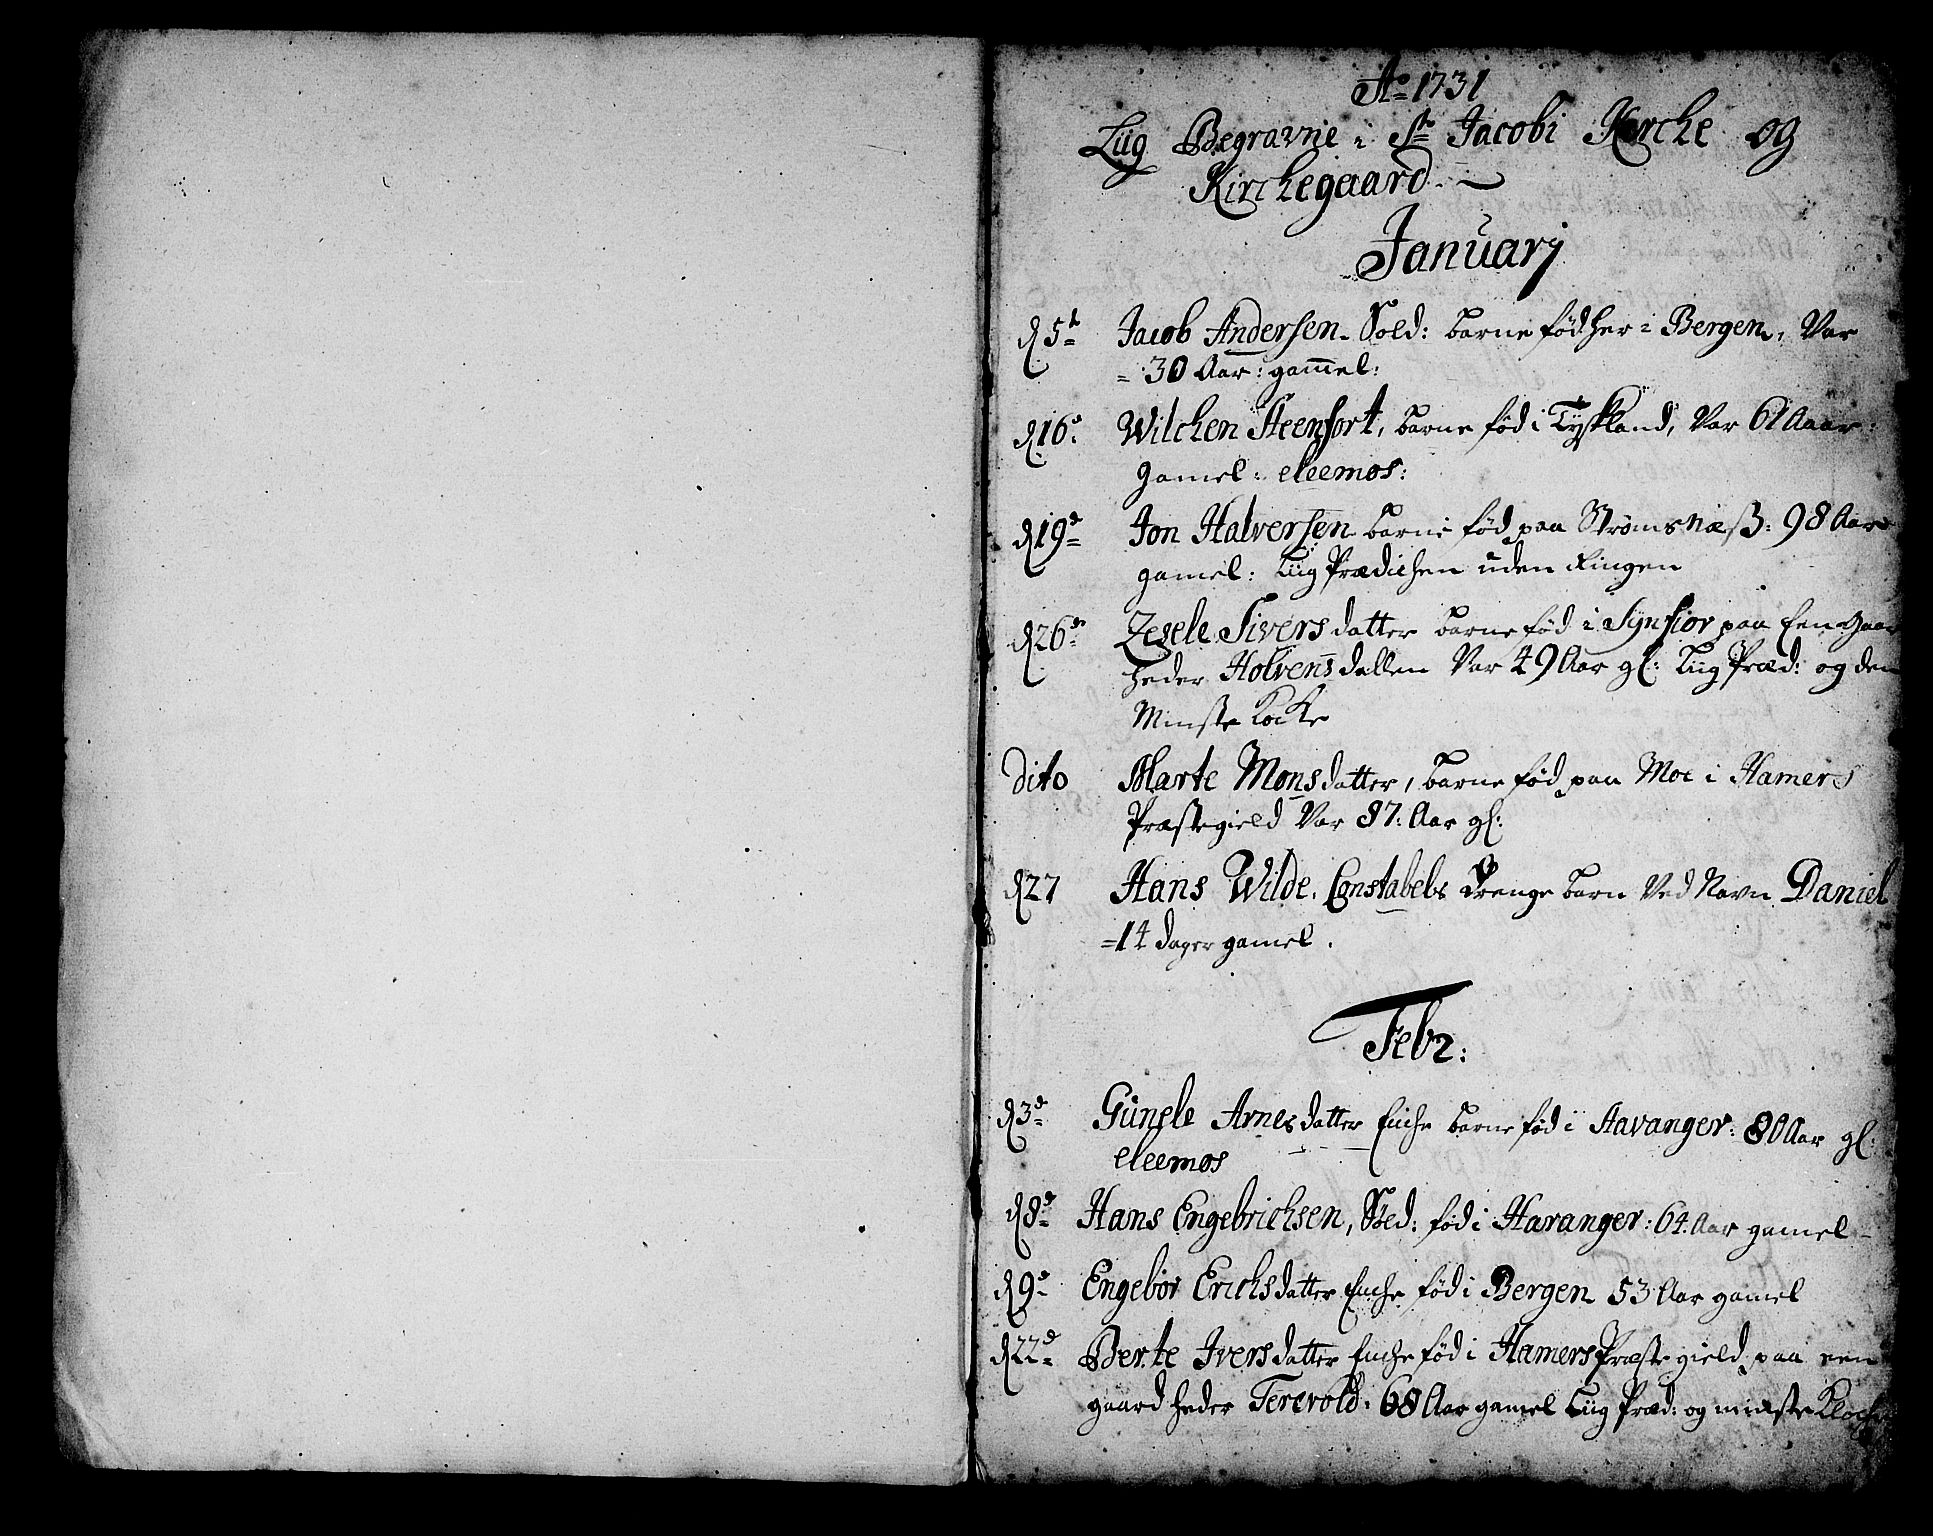 Ao 1731
Liig Begravne i St Jacobi Kirche og
Kirchegaard.
Januarij
d 5t Jacob Andersen. Sold: barnefød her i Bergen, Var
30 Aar: gammel:
d 16d Wilchen Steenfort, barnefød i Tyskland, Var 61 Aaar
gamel: eleemos:
d 19d Jon Halversen barnefød paa Strømsnæss: 98 Aar
gamel: Liig Prædichen uden Ringen
d 26d Zesele Siversdatter barnefød i Synfior paa Een gaar
heder Holvensdallen Var 49 Aar gl: Liig Præd: og den
Minste kocke
Dito Marte Monsdatter, barnefød paa Moe i Hamers
Præstegield Var 87: Aar gl:
d 27 Hans Wilde. Constabels Drenge barn Ved Navn Daniel
14 dager gamel.
Febr:
d 3d Günsle Arnesdatter Enche barnefød i Aavanger: 80 Aar gl:
eleemos
d 8d Hans Engebrichsen, Sold: fød i Haranger: 64. Aar gamel
d 9d Engebor Erichsdatter Enche fød i Bergen 53 Aar gamel
d 22d Berte Iversdatter Enche fød i Hamers Præstegield paa een
gaard heder Terevold: 68 Aar gamel Liig Præd: og minste Kloche